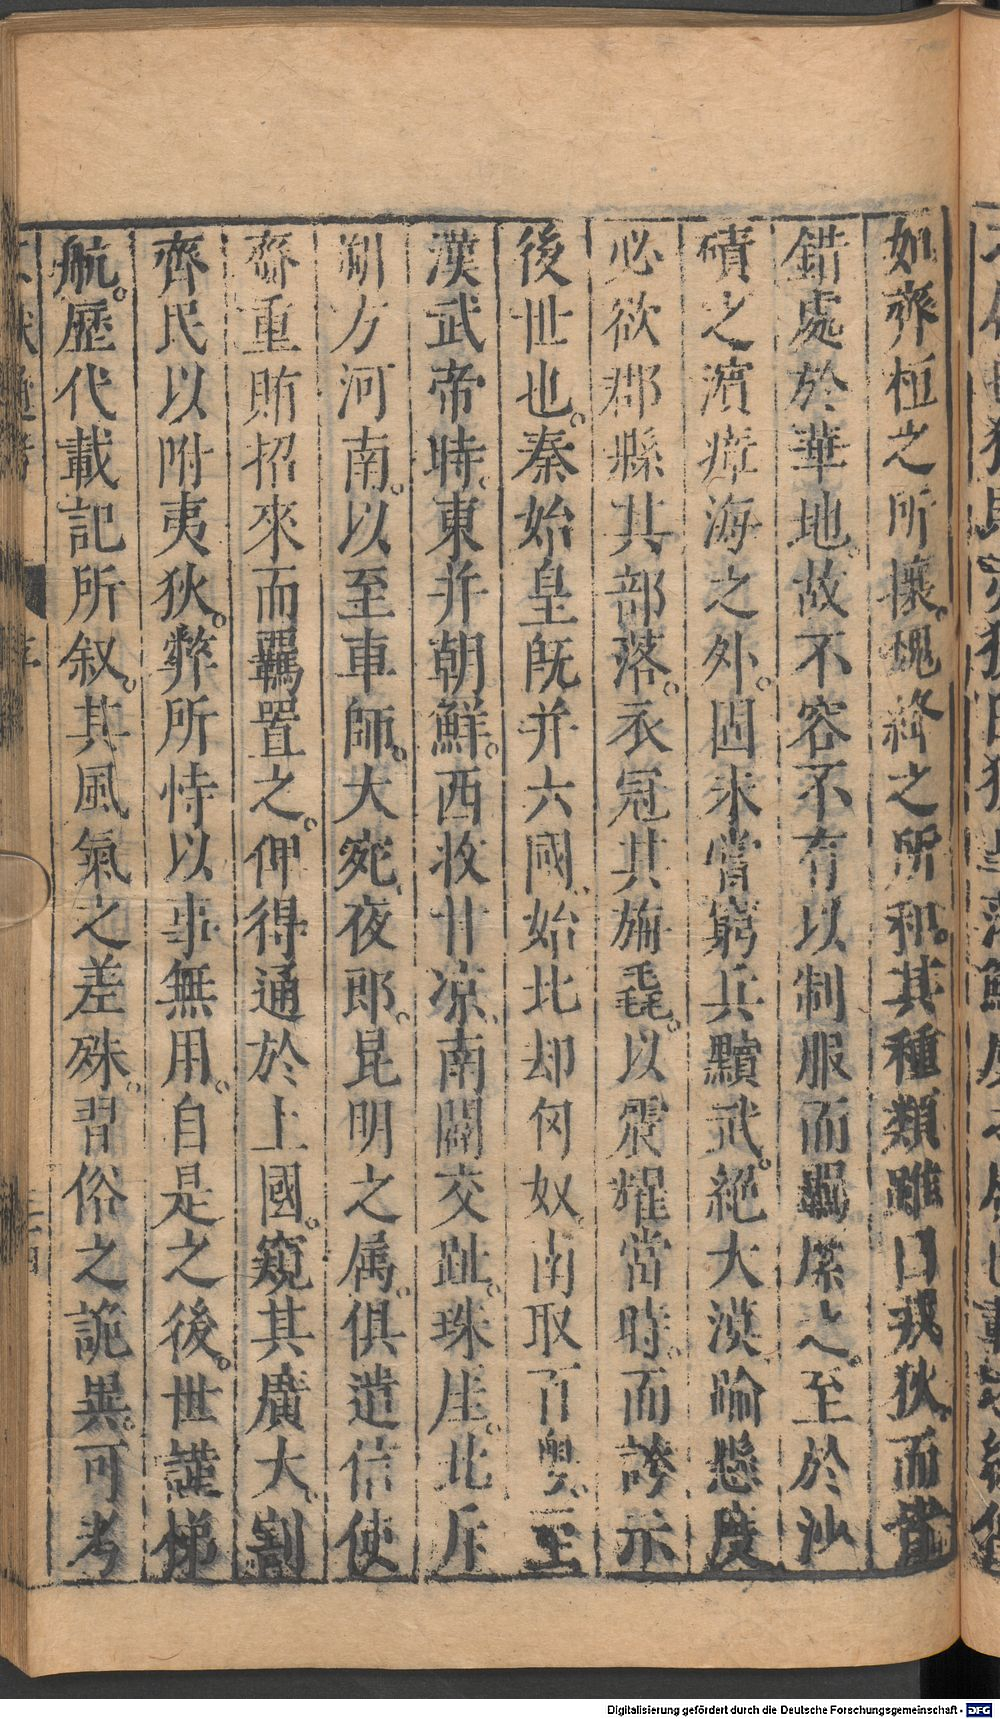 如齊桓之所攘。魏絳之所和。其種類雖曰戎狄。而嘗
錯處於華地。故不容不有以制服而羈縻之。至於沙
磧之濱瘴海之外。固未嘗窮兵黷武。絕大漠踰懸度
必欲郡縣其部落。衣冠其旃毳。以震耀當時。而誇示
後世也。秦始皇旣并六國。始北却匈奴。南取百粵。至
漢武帝時。東并朝鮮。西收甘凉。南闢交趾。珠崖。北斥
朔方河南。以至車師。大宛。夜郎。昆明之属。俱遣信使
齎重賄招來而羈置之。俾得通於上國。窺其廣大。割
齊民以附夷狄。弊所恃以事無用。自是之後。世謹梯
航。歷代載記所叙。其風氣之差殊。習俗之詭異。可考
文獻通考
Digitalisierung gefördert durch die Deutsche Forschungsgemeinschaft - DFG